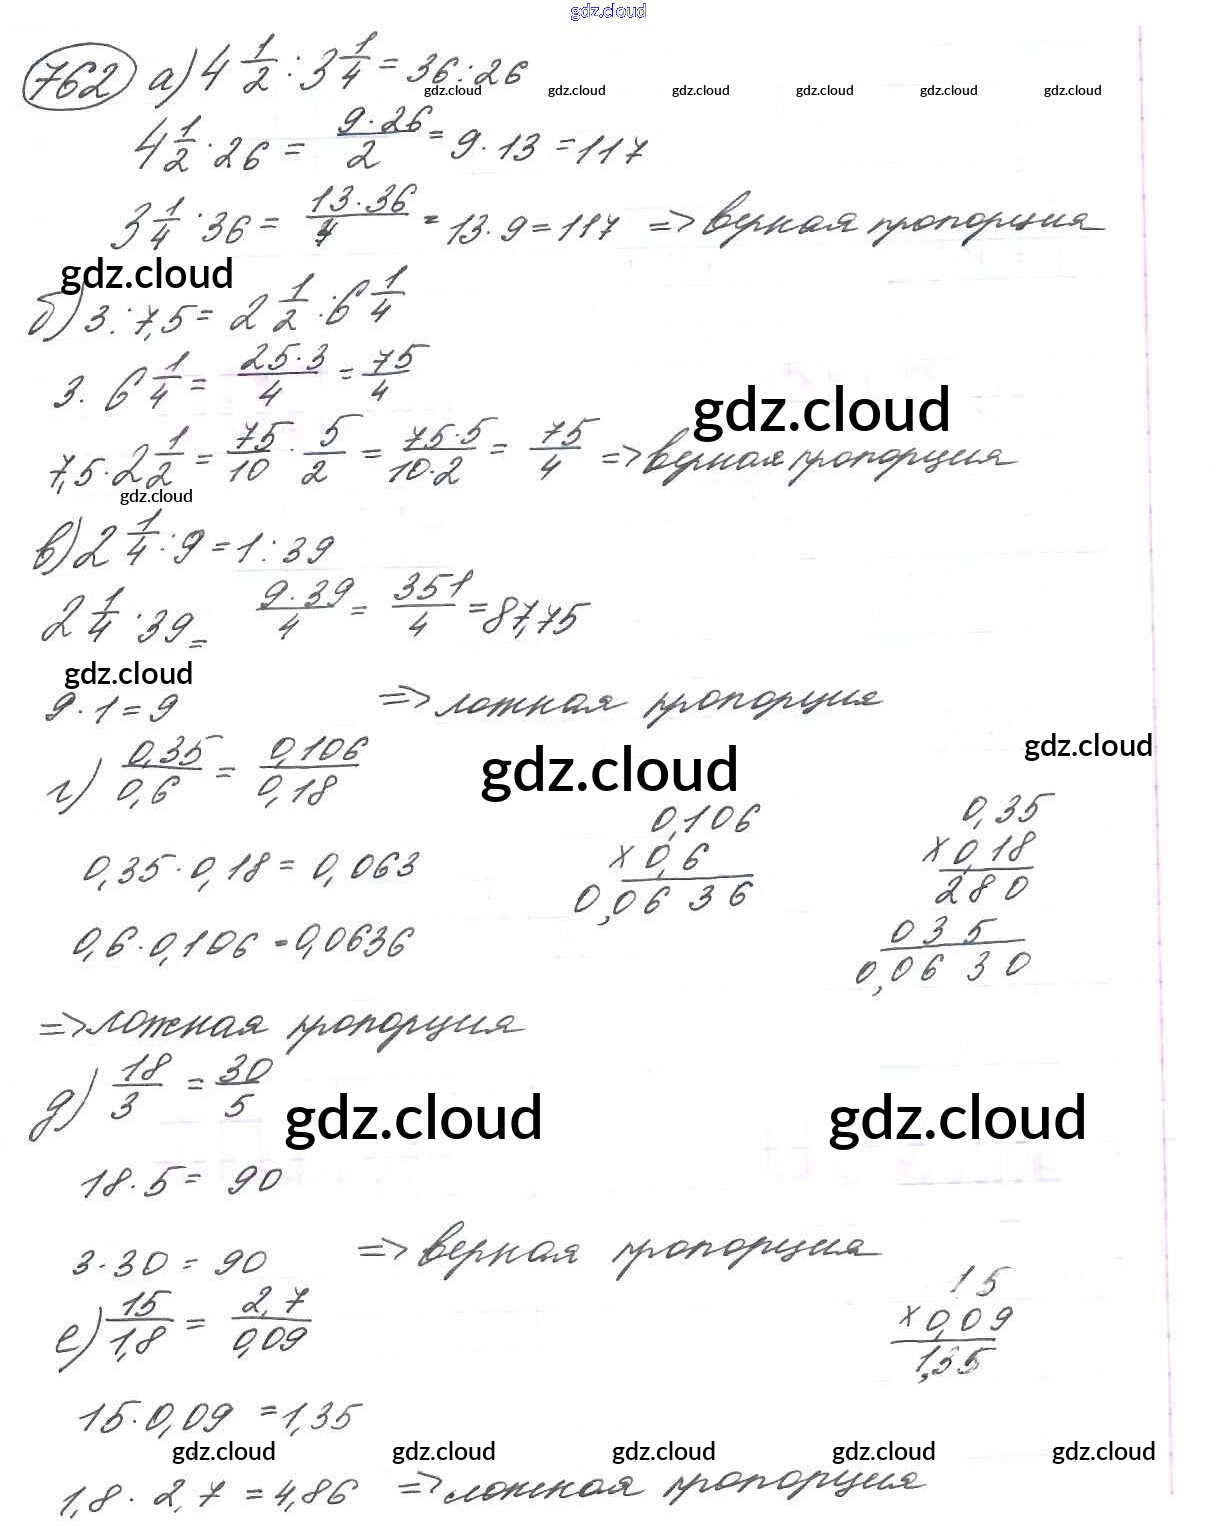 gdz.cloud
762 а) 4 1/2 : 3 1/4 = 36 : 26
gdz.cloud gdz.cloud gdz.cloud gdz.cloud gdz.cloud gdz.cloud
4 1/2 · 26 = 9·26/2 = 9 · 13 = 117
3 1/4 · 36 = 13·36/4 = 13 · 9 = 117 => верная пропорция
gdz.cloud
б) 3 : 7,5 = 2 1/2 : 6 1/4
3 · 6 1/4 = 25·3/4 = 75/4
gdz.cloud
7,5 · 2 1/2 = 75/10 · 5/2 = 75·5/10·2 = 75/4 => верная пропорция
gdz.cloud
в) 2 1/4 : 9 = 1 : 39
2 1/4 · 39 = 9·39/4 = 351/4 = 87,75
gdz.cloud
9 · 1 = 9 => ложная пропорция
г) 0,35/0,6 = 0,106/0,18
gdz.cloud
gdz.cloud
0,35 · 0,18 = 0,063
0,6 · 0,106 = 0,0636
0,106
× 0,6
0,0636
0,35
× 0,18
280
035
0,0630
=> ложная пропорция
д) 18/3 = 30/5
gdz.cloud gdz.cloud
18 · 5 = 90
3 · 30 = 90 => верная пропорция
е) 15/1,8 = 2,7/0,09
15
× 0,09
1,35
15 · 0,09 = 1,35
gdz.cloud gdz.cloud gdz.cloud gdz.cloud gdz.cloud
1,8 · 2,7 = 4,86 => ложная пропорция